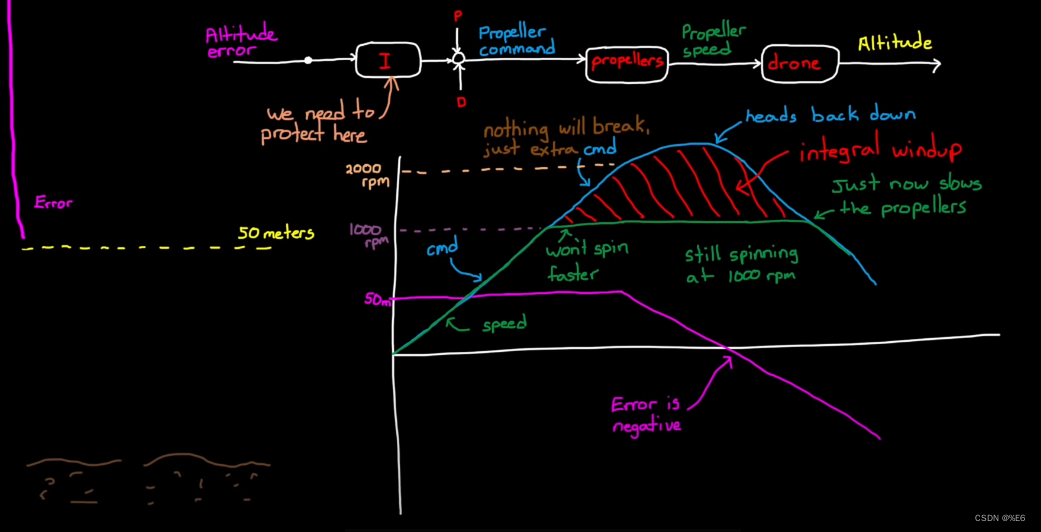 Altitude
error
I
P
D
Propeller
command
propellers
Propeller
speed
drone
Altitude
we need to
protect here
nothing will break,
just extra cmd
heads back down
integral windup
Just now slows
the propellers
2000
rpm
1000
rpm
Error
50 meters
cmd
wont spin
faster
still spinning
at 1000 rpm
50m
speed
Error is
negative
CSDN @%E6